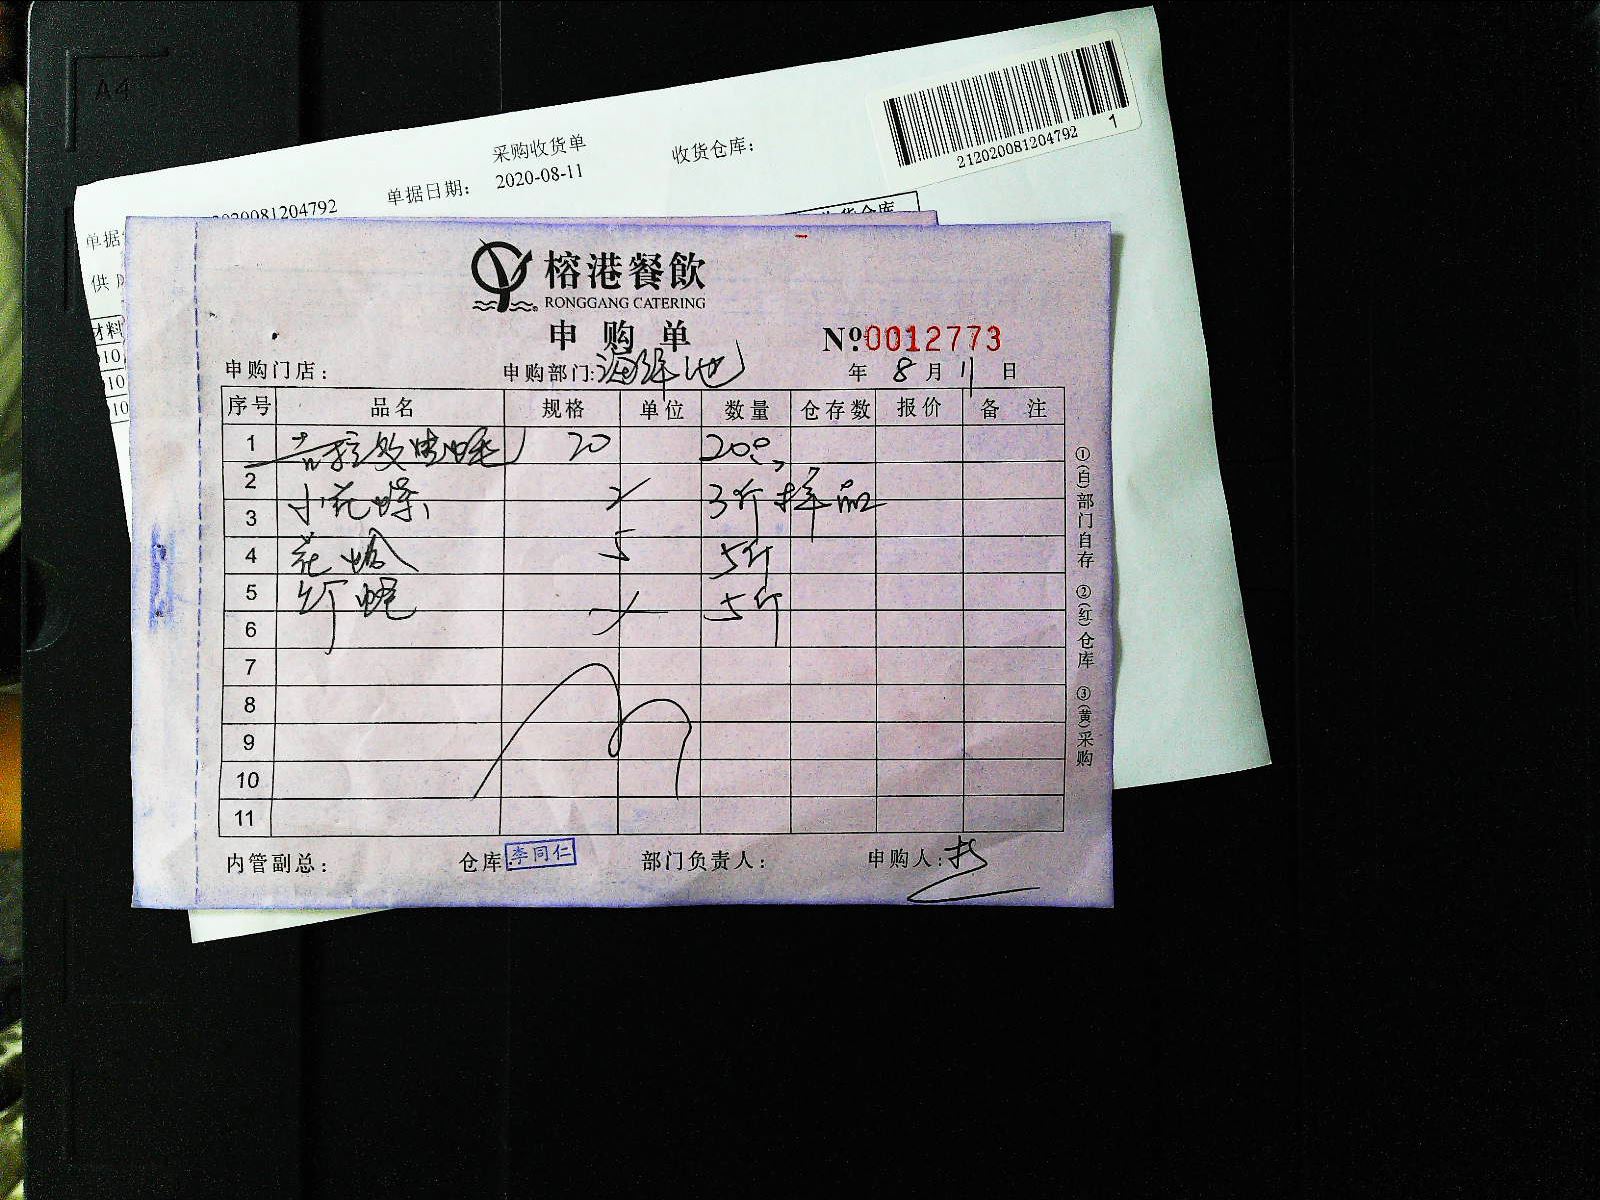 A4
212020081204792 1
采购收货单
单据日期: 2020-08-11 收货仓库:
单据 2020081204792
收货仓库
供
材料
10
10
10
榕港餐飲
RONGGANG CATERING
申购单 №:0012773
申购门店: 申购部门:海鲜池 年 8 月 11 日
序号 品名 规格 单位 数量 仓存数 报价 备 注
1 20
2
小花螺 3斤样品
3
4 花蛤 5 5斤
5 5斤
6
7
8
9
10
11
①(白)部门自存 ②(红)仓库 ③(黄)采购
内管副总: 仓库: 李同仁 部门负责人: 申购人: